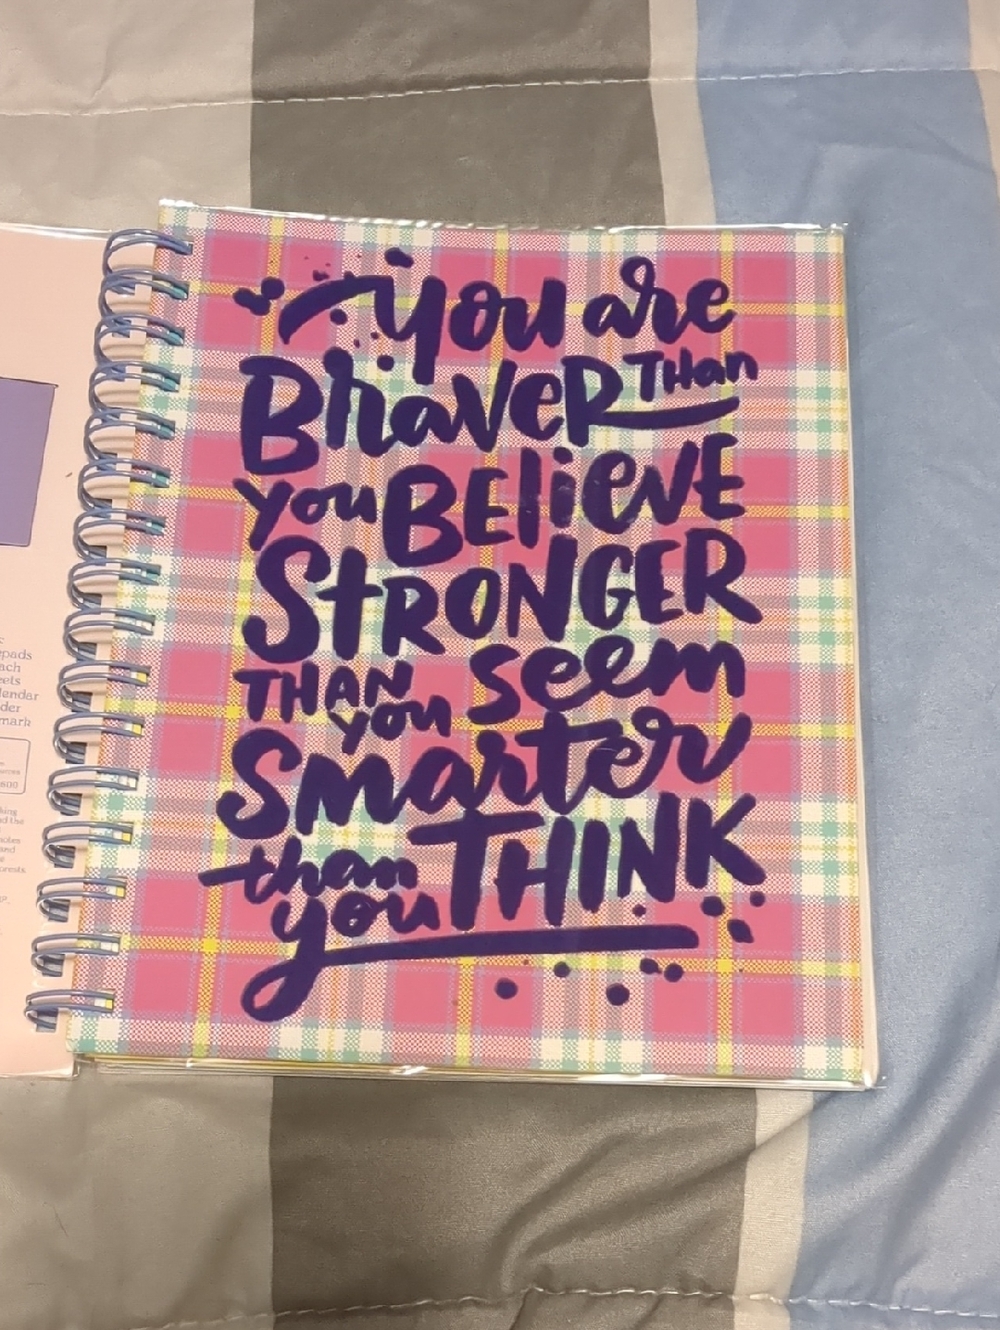 You are
BRAVER THan
you BEliEVE
StRONGER
THAN you seem
Smarter
than you THINK
epads
ach
eets
lendar
der
mark